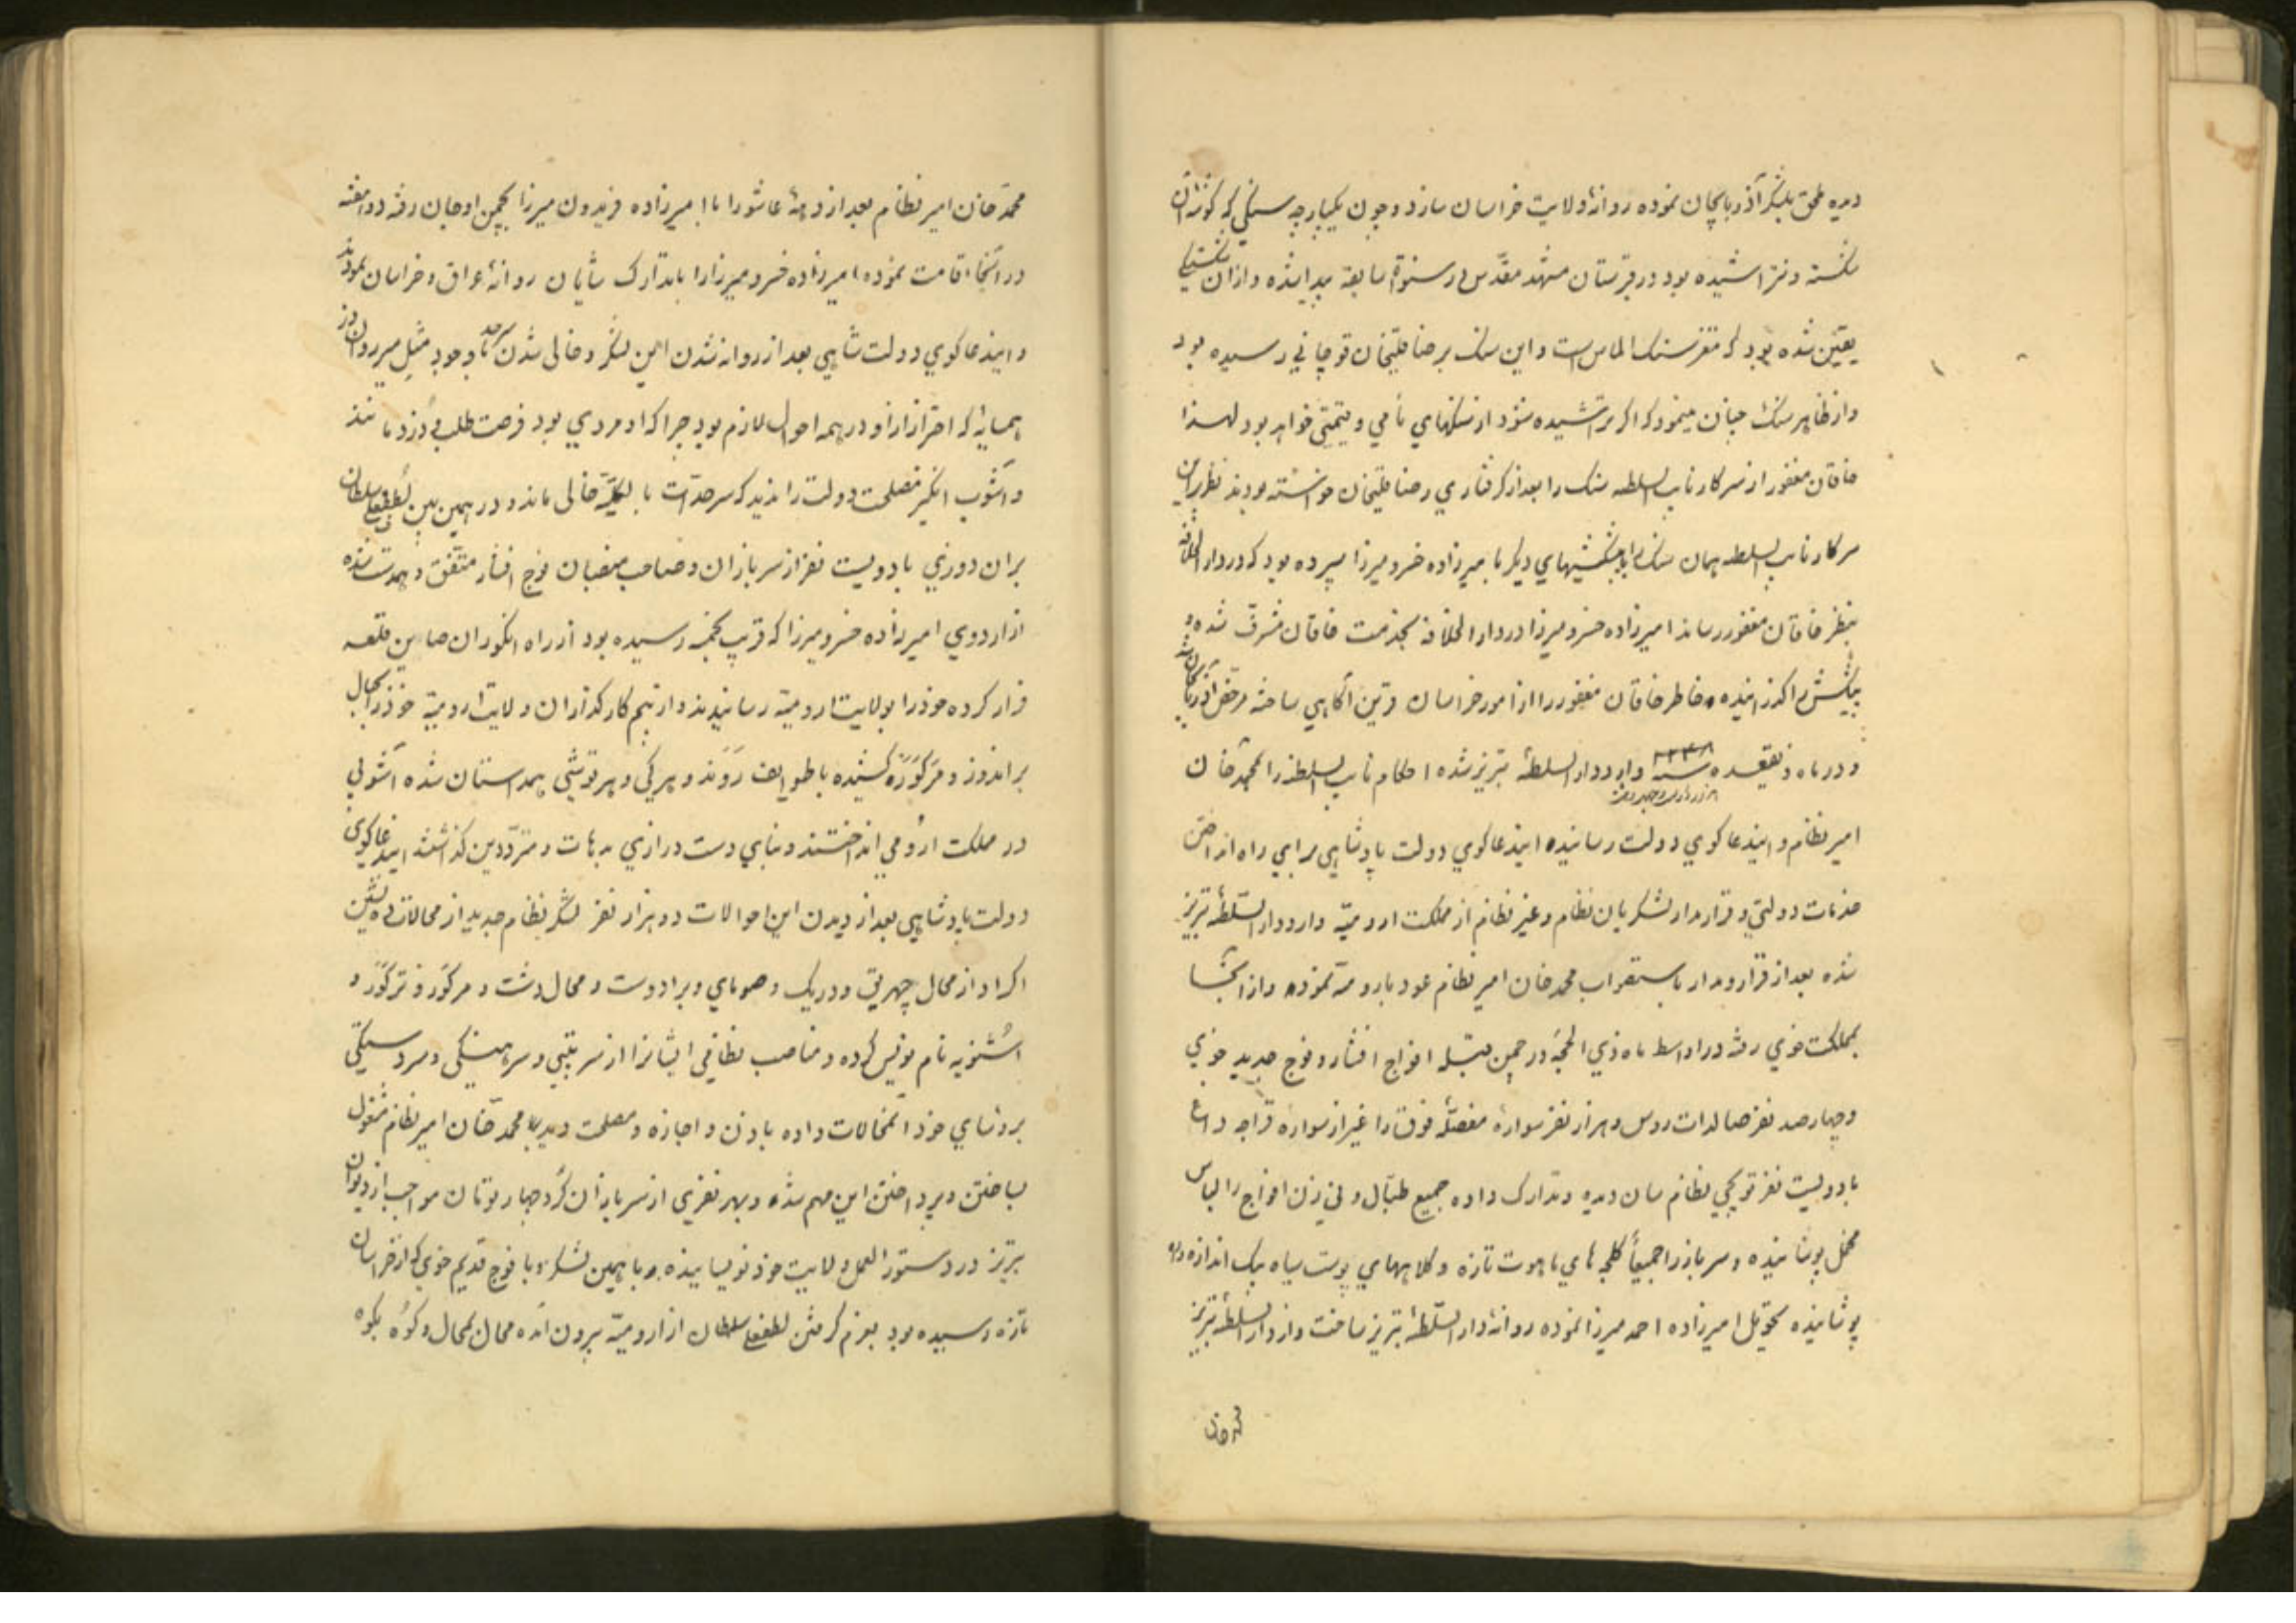 دیده ملحق بلشکر آذربایجان نموده روانهٔ ولایت خراسان سازد و چون یکپارچه سنگی که گوشهٔ آن
شکسته و نتراشیده بود در قبرستان مشهد مقدس در سنوات سابقه پیدا شده و از آن شکستگی
یقین شده بود که مغز سنک الماس است و این سنک برضا قلیخان قوچانی رسیده بود
و از ظاهر سنک چنان مینمود که اگر تراشیده شود از سنکهای نامی و قیمتی خواهد بود لهذا
خاقان مغفور از سرکار نایب السلطنه سنک را بعد از گرفتاری رضا قلیخان خواسته بودند نظر باین
سرکار نایب السلطنه همان سنک را با پیشکشیهای دیگر بامیرزاده خسرو میرزا سپرده بود که در دار الخلافه
بنظر خاقان مغفور رساند امیرزاده خسرو میرزا در دار الخلافه بخدمت خاقان مشرف شده و
پیشکش را گذرانیده و خاطر خاقان مغفور را از امور خراسان قرین آگاهی ساخته مرخص آذربایجان شد
و در ماه ذیقعده سنه ۱۲۴۸ وارد دار السلطنهٔ تبریز شده احکام نایب السلطنه را بمحمد خان
امیر نظام و ایندعاکوی دولت رسانیده ایندعاکوی دولت پادشاهی برای راه انداختن
خدمات دولتی و قرار مدار لشکریان نظام و غیر نظام از مملکت ارومیه وارد دار السلطنهٔ تبریز
شده بعد از قرار و مدار باستصواب محمد خان امیر نظام عود بارومیه نموده و از آنجا
بمملکت خوی رفته در اواسط ماه ذی الحجه در چمن افواج افشار و فوج جدید خوی
و چهار صد نفر صالدات روس و هزار نفر سوارهٔ مفصلهٔ فوق را غیر از سوارهٔ قراجه داغ
با دویست نفر توپچی نظام سان دیده و تدارک داده جمیع طبال و نی زن افواج را لباس
مخمل پوشانیده و سرباز را جمیعاً کلجه های ماهوت تازه و کلاههای پوست سیاه بیک اندازه داده
پوشانیده بتحویل امیرزاده احمد میرزا نموده روانهٔ دار السلطنهٔ تبریز ساخت و از دار السلطنهٔ تبریز
محمد خان
محمد خان امیر نظام بعد از دههٔ عاشورا با امیرزاده فریدون میرزا بچمن اوجان رفته دو هفته
در آنجا اقامت نموده امیرزاده خسرو میرزا را با تدارک شایان روانهٔ عراق و خراسان نمودند
و ایندعاکوی دولت شاهی بعد از روانه شدن این لشکر و خالی شدن سرحد با وجود مثل میر روان دز
همسایهٔ که احتراز از او در همه احوال لازم بود چرا که او مردی بود فرصت طلب و دزد مانند
و آشوب انگیز مصلحت دولت را ندید که سرحدات بالکلیه خالی ماند و در همین بین لطفعلی سلطان
بران دوزی با دویست نفر از سربازان و صاحب منصبان فوج افشار متفق و همدست شده
از اردوی امیرزاده خسرو میرزا که قریب بخمسه رسیده بود از راه انکوران صاین قلعه
فرار کرده خود را بولایت ارومیه رسانیدند و از بیم کارکذاران ولایت ارومیه خود را بمحال
براندوز و مرکوره کشیده با طوایف روند و هرکی و هر توشی همدستان شده آشوبی
در مملکت ارومی انداختند و بنای دست درازی بدهات و متردّدین گذاشتند ایندعاکوی
دولت پادشاهی بعد از دیدن این احوالات دو هزار نفر لشکر نظام جدید از محالات نشین
اکراد از محال چهریق و دریک و صومای و برادوست و محال دشت و مرکور و ترکور و
اشنویه نام نویس کرده و مناصب نظامی ایشانرا از سرتیپی و سرهنگی و سردستکی
برؤسای خود آنمحالات داده باذن و اجازه و مصلحت دید محمد خان امیر نظام مشغول
بساختن و پرداختن این مهم شده و بهر نفری از سربازان کرد چهار تومان مواجب از دیوان
تبریز در دستور العمل ولایت خود نویسانیده و با همین لشکر و با فوج قدیم خوی که از خراسان
تازه رسیده بود بعزم گرفتن لطفعلی سلطان از ارومیه بیرون آمده محال بمحال و کوه بکوه